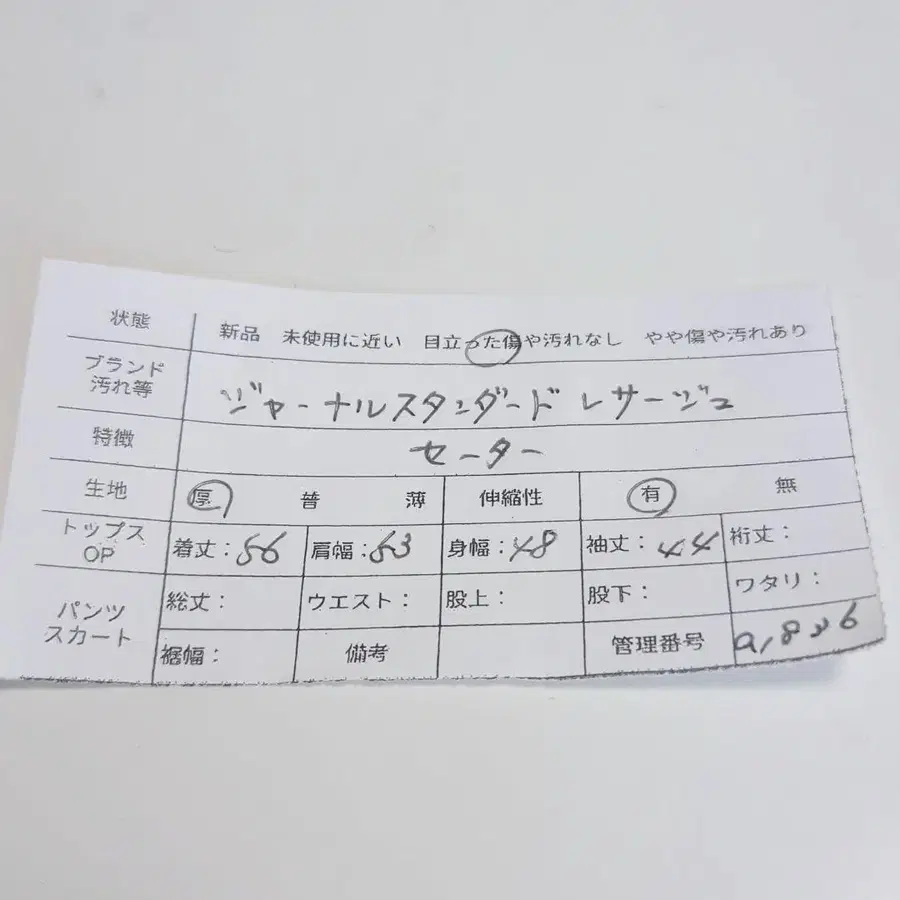 状態 新品 未使用に近い 目立った傷や汚れなし やや傷や汚れあり
ブランド
汚れ等 ジャーナルスタンダード レサージュ
特徴 セーター
生地 厚 普 薄 伸縮性 有 無
トップス
OP 着丈：56 肩幅：53 身幅：48 袖丈：44 裄丈：
パンツ
スカート 総丈： ウエスト： 股上： 股下： ワタリ：
裾幅： 備考 管理番号